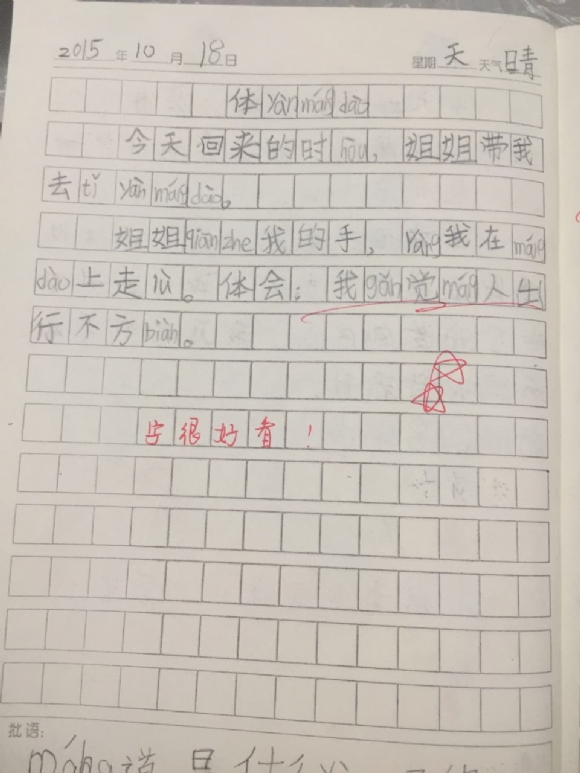 2015年10月18日 星期天 天气晴
体yàn máng dào
今天回来的时hòu，姐姐带我
去tǐ yàn máng dào。
姐姐qiān zhe我的手，ràng我在máng
dào上走lù。体会：我gǎn觉máng人出
行不方biàn。
字很好看！
批语：
máng道是什么